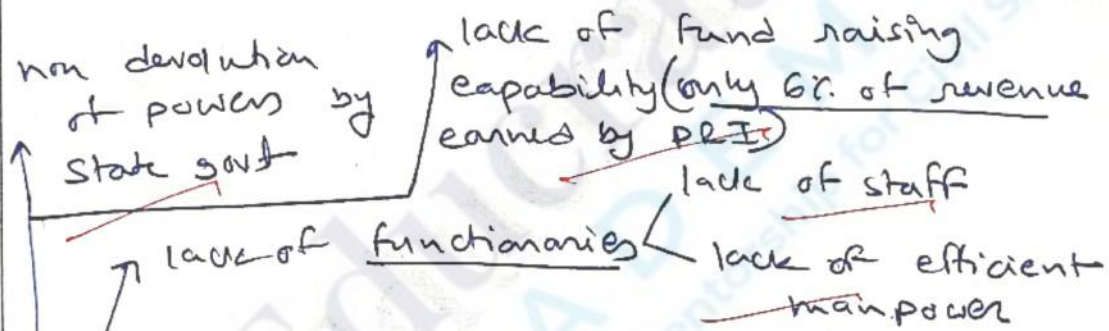 non devolution
of powers by
State govt
lack of fund raising
capability (only 6% of revenue
earned by PRI)
lack of functionaries
lack of staff
lack of efficient
manpower